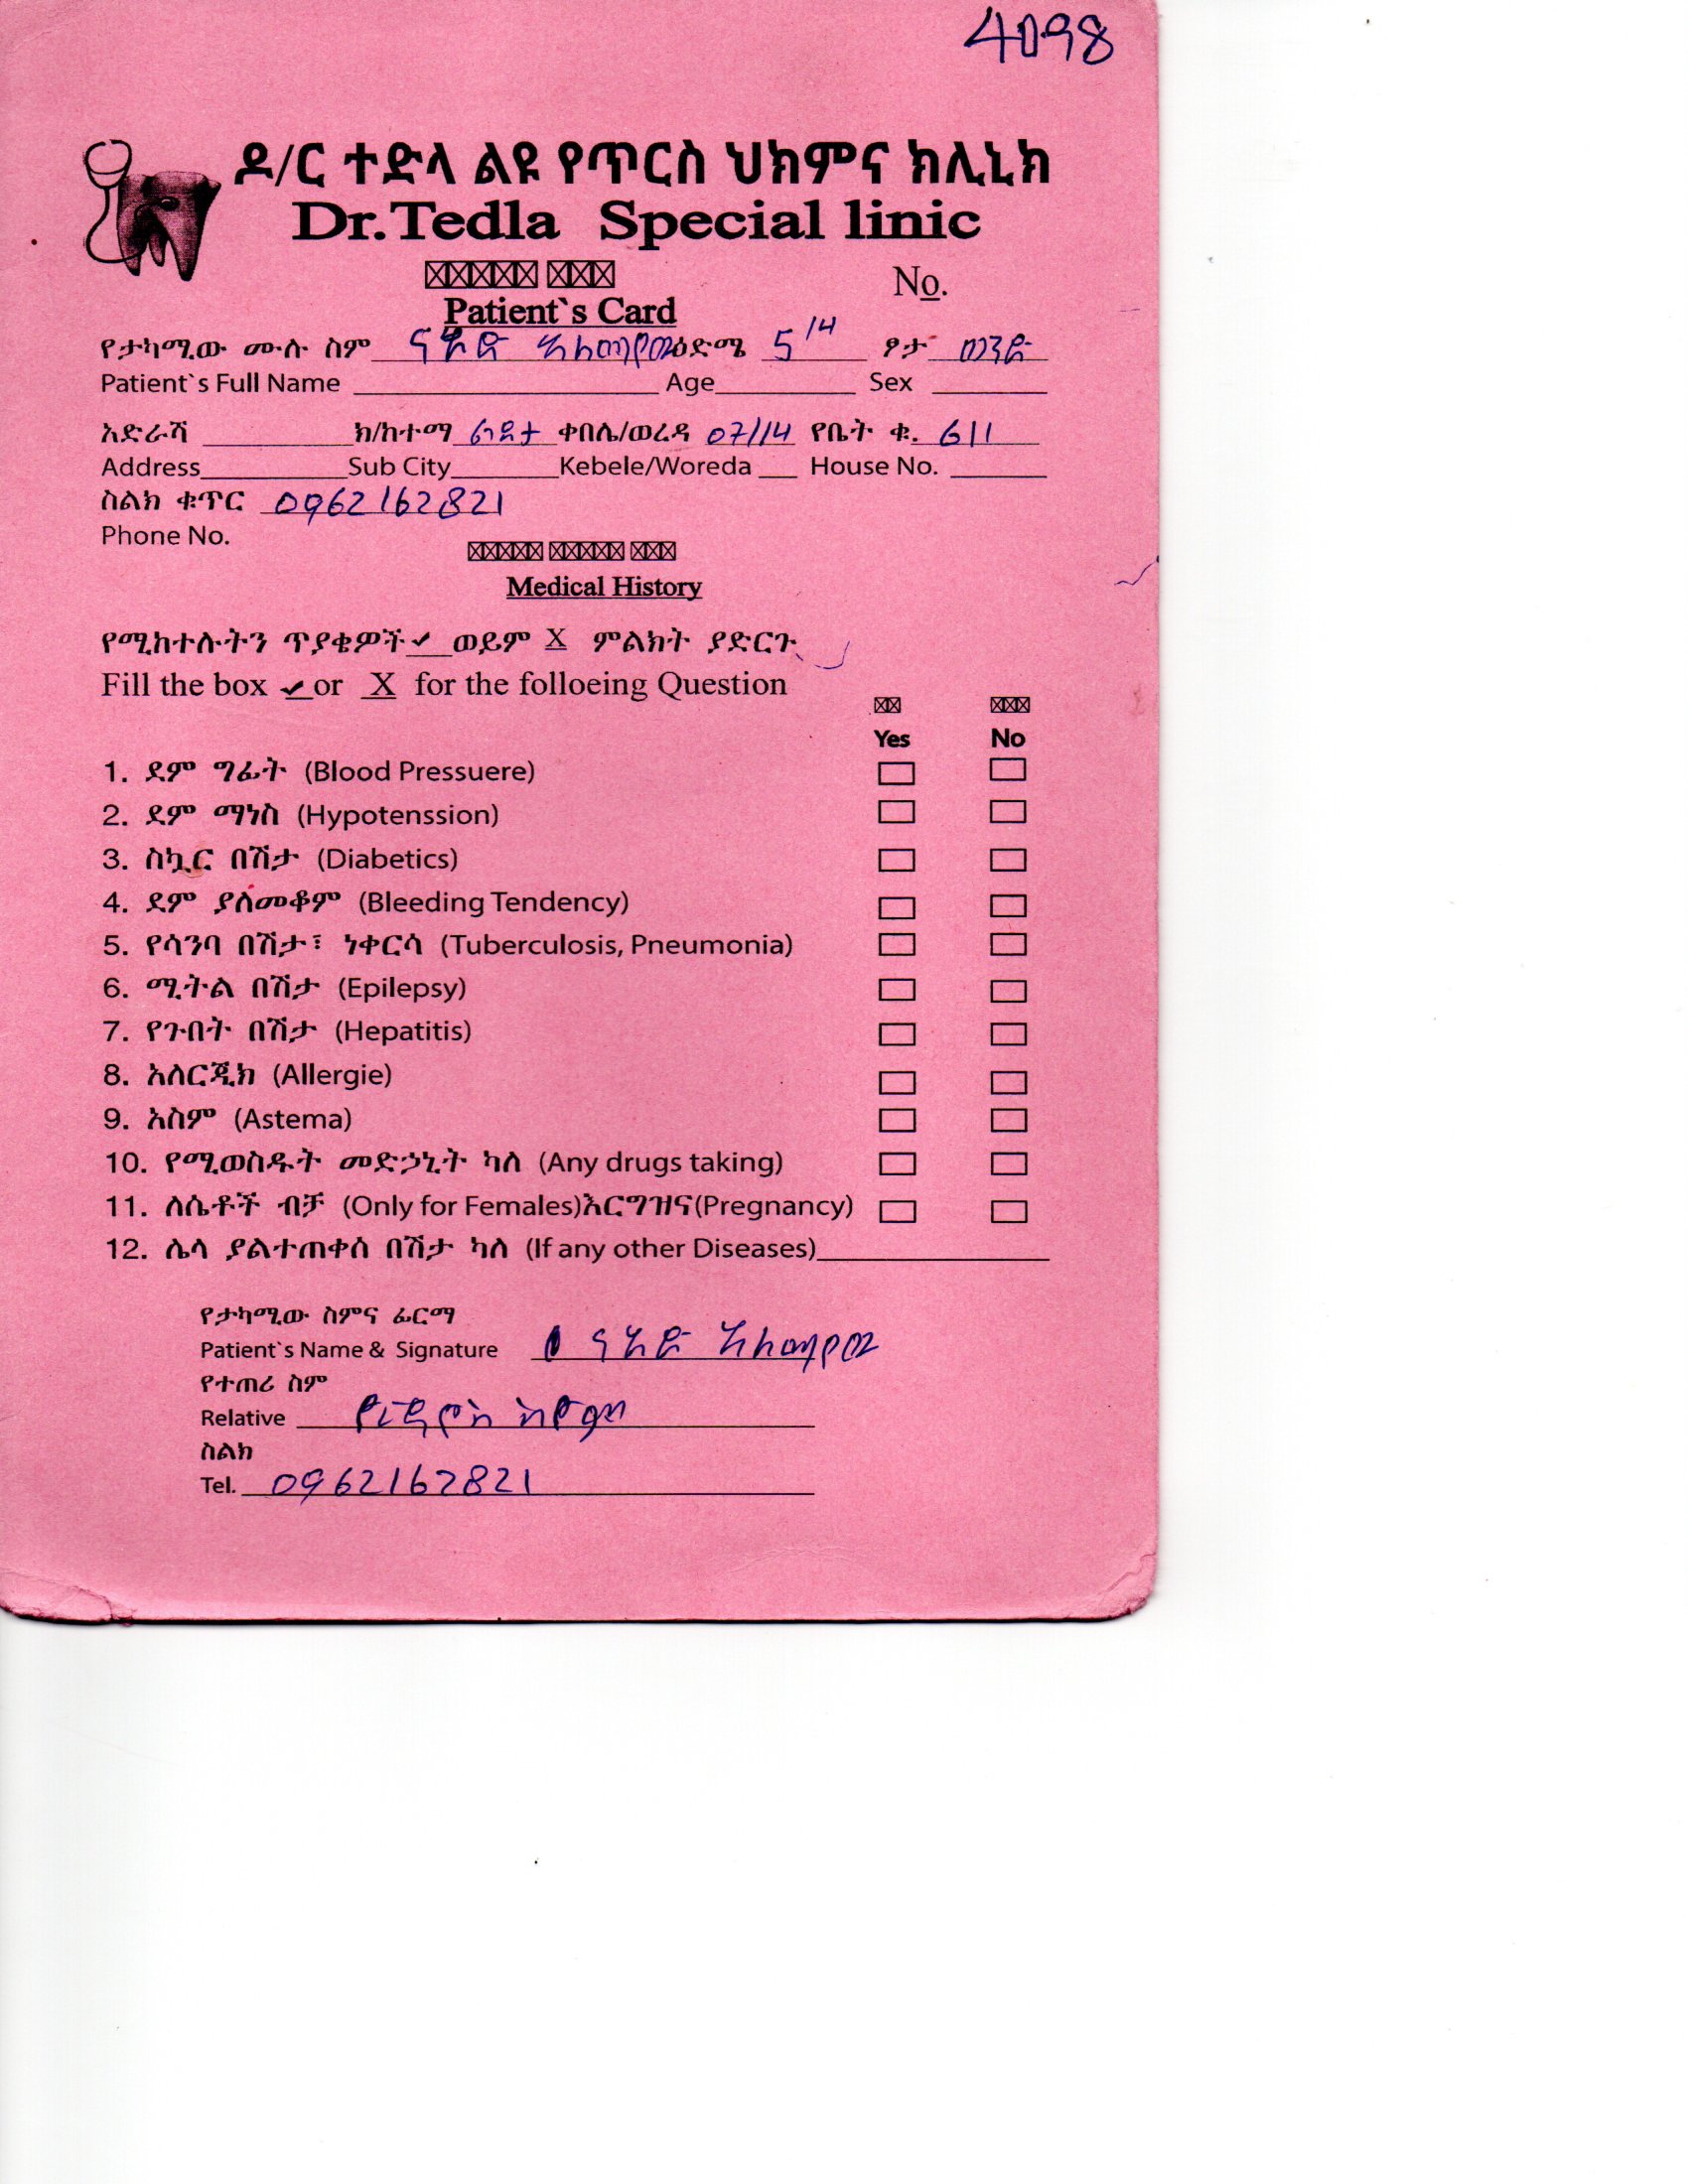 4098
ዶ/ር ተድላ ልዩ የጥርስ ህክምና ክሊኒክ
Dr.Tedla Special linic
No.
Patient`s Card
የታካሚው ሙሉ ስም ዕድሜ 5 ፆታ ወንድ
Patient`s Full Name Age Sex
አድራሻ ክ/ከተማ ልደታ ቀበሌ/ወረዳ 07/14 የቤት ቁ. 611
Address Sub City Kebele/Woreda House No.
ስልክ ቁጥር 0962162821
Phone No.
Medical History
የሚከተሉትን ጥያቄዎች ✓ ወይም X ምልክት ያድርጉ
Fill the box ✓ or X for the folloeing Question
Yes No
1. ደም ግፊት (Blood Pressuere)
2. ደም ማነስ (Hypotenssion)
3. ስኳር በሽታ (Diabetics)
4. ደም ያለመቆም (Bleeding Tendency)
5. የሳንባ በሽታ፣ ነቀርሳ (Tuberculosis, Pneumonia)
6. ሚትል በሽታ (Epilepsy)
7. የጉበት በሽታ (Hepatitis)
8. አለርጂክ (Allergie)
9. አስም (Astema)
10. የሚወስዱት መድኃኒት ካለ (Any drugs taking)
11. ለሴቶች ብቻ (Only for Females)እርግዝና(Pregnancy)
12. ሌላ ያልተጠቀሰ በሽታ ካለ (If any other Diseases)
የታካሚው ስምና ፊርማ
Patient`s Name & Signature
የተጠሪ ስም
Relative
ስልክ
Tel. 0962162821